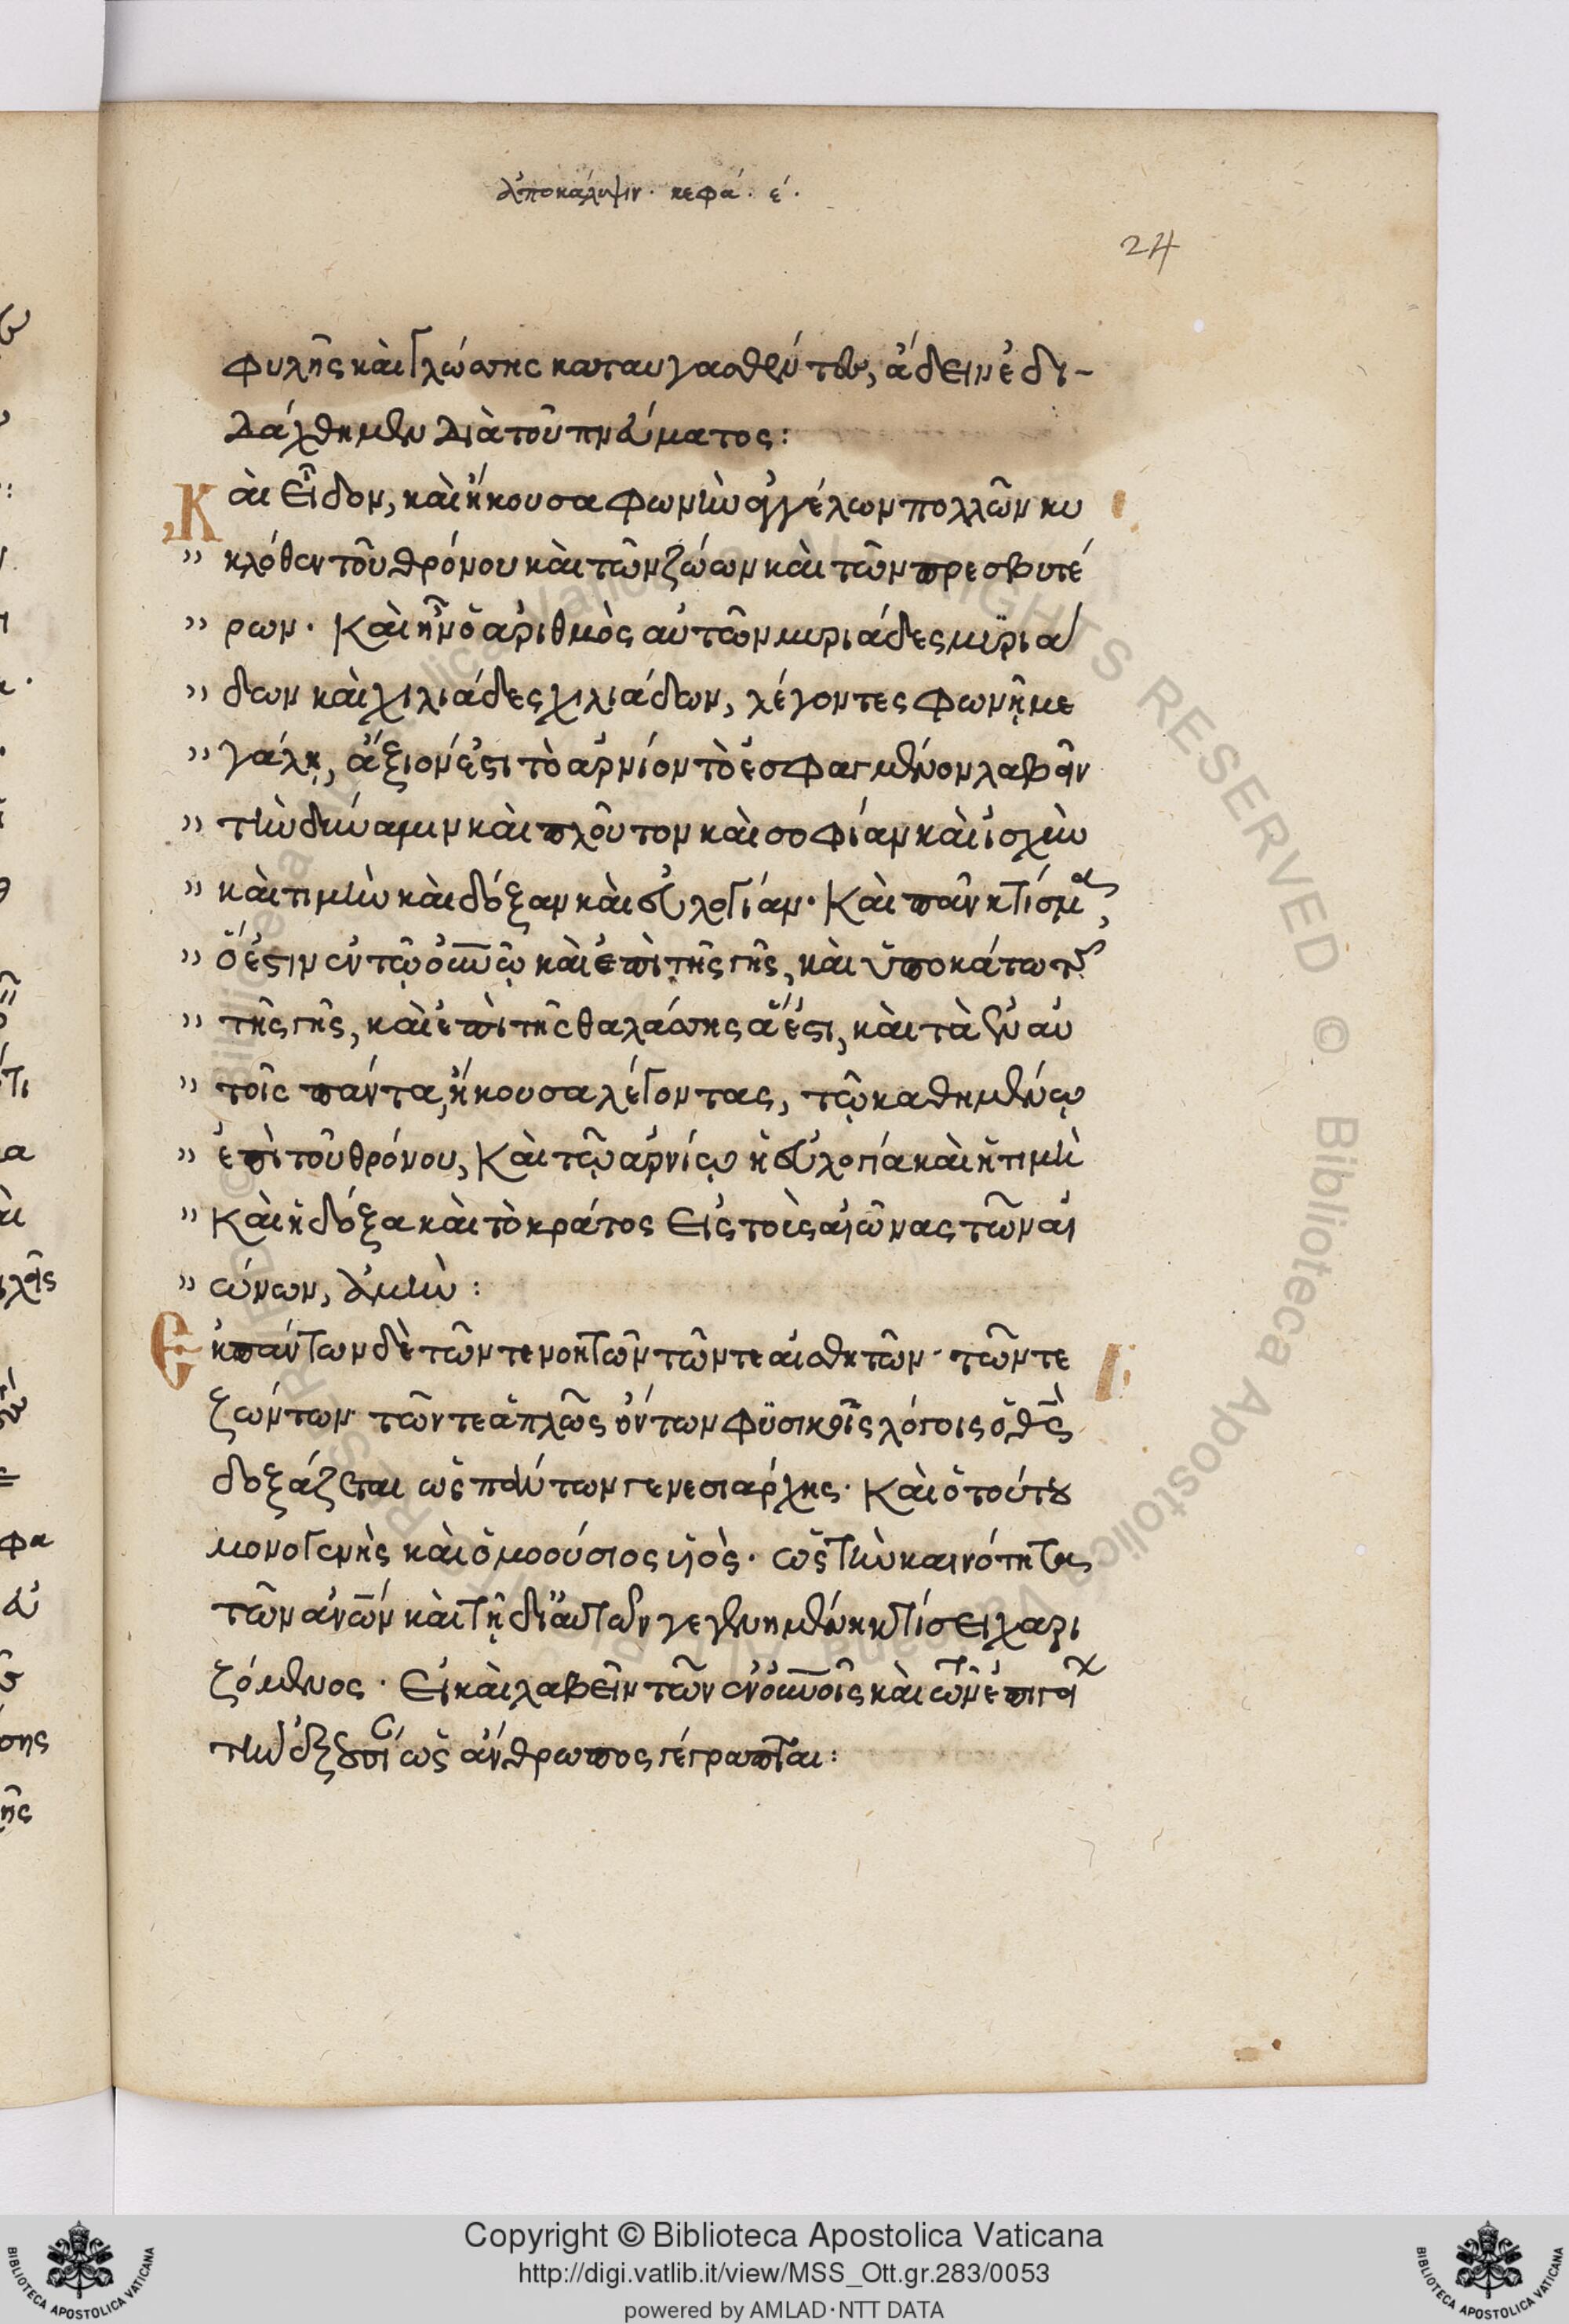 ἀποκάλυψιν. κεφά. ε΄.
24
φυλῆς καὶ γλώσσης καταυγασθέντων, ἄδειν ἐδι-
δάχθημεν διὰ τοῦ πνεύματος:
Καὶ εἶδον, καὶ ἤκουσα φωνὴν ἀγγέλων πολλῶν κυ
" κλόθεν τοῦ θρόνου καὶ τῶν ζώων καὶ τῶν πρεσβυτέ
" ρων. Καὶ ἦν ὁ ἀριθμὸς αὐτῶν μυριάδες μυριά
" δων καὶ χιλιάδες χιλιάδων, λέγοντες φωνῇ με
" γάλῃ, ἄξιόν ἐστι τὸ ἀρνίον τὸ ἐσφαγμένον λαβεῖν
" τὴν δύναμιν καὶ πλοῦτον καὶ σοφίαν καὶ ἰσχὺν
" καὶ τιμὴν καὶ δόξαν καὶ εὐλογίαν. Καὶ πᾶν κτίσμα,
" ὅ ἐστιν ἐν τῷ οὐνῷ καὶ ἐπὶ τῆς γῆς, καὶ ὑποκάτω
" τῆς γῆς, καὶ ἐπὶ τῆς θαλάσσης ἅ ἐστι, καὶ τὰ ἐν αὐ
" τοῖς πάντα, ἤκουσα λέγοντας, τῷ καθημένῳ
" ἐπὶ τοῦ θρόνου, Καὶ τῷ ἀρνίῳ ἡ εὐλογία καὶ ἡ τιμὴ
" Καὶ ἡ δόξα καὶ τὸ κράτος εἰς τοὺς αἰῶνας τῶν αἰ
" ώνων, ἀμήν:
Ἐκ πάντων δὲ τῶν τε νοητῶν τῶν τε αἰσθητῶν. τῶν τε
ζώντων τῶν τε ἁπλῶς ὄντων φυσικοῖς λόγοις ὁ θς
δοξάζεται ὡς πάντων γενεσιάρχης. Καὶ ὁ τούτου
μονογενὴς καὶ ὁμοούσιος υἱὸς. ὡς τὴν καινότητα
τῶν ἀνων καὶ τῇ δι' αὐτῶν γεγενημένῃ κτίσει χαρι
ζόμενος. Εἰ καὶ λαβεῖν τῶν ἐν οὐνοῖς καὶ τῶν ἐπὶ γῆς
τὴν ἐξουσίαν ὡς ἄνθρωπος γέγραπται:
Copyright © Biblioteca Apostolica Vaticana
http://digi.vatlib.it/view/MSS_Ott.gr.283/0053
powered by AMLAD·NTT DATA